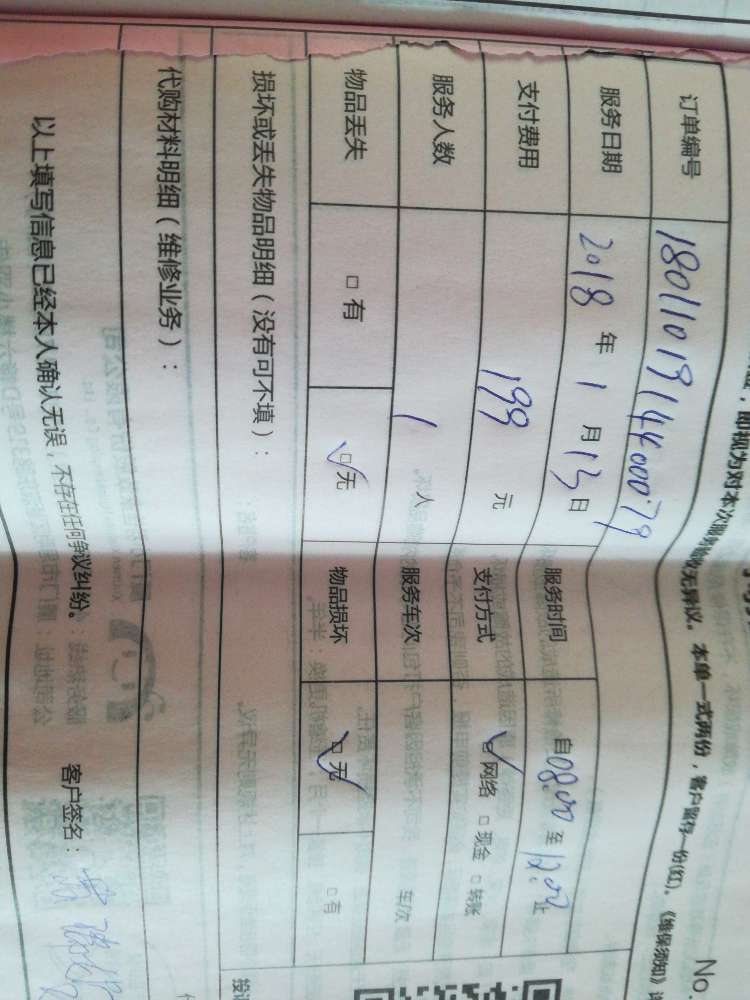 No.
即视为对本次服务验收无异议。本单一式两份，客户留存一份(红)。《维保须知》
订单编号 18011019144000079
服务日期 2018 年 1 月 13 日 服务时间 自 08:00 至 12:00 止
支付费用 199 元 支付方式 ☑网络 □现金 □转账
服务人数 1 人 服务车次 车/次
物品丢失 □有 ☑无 物品损坏 ☑无 □有
损坏或丢失物品明细（没有可不填）：
代购材料明细（维修业务）：
以上填写信息已经本人确认无误，不存在任何争议纠纷。 客户签名：